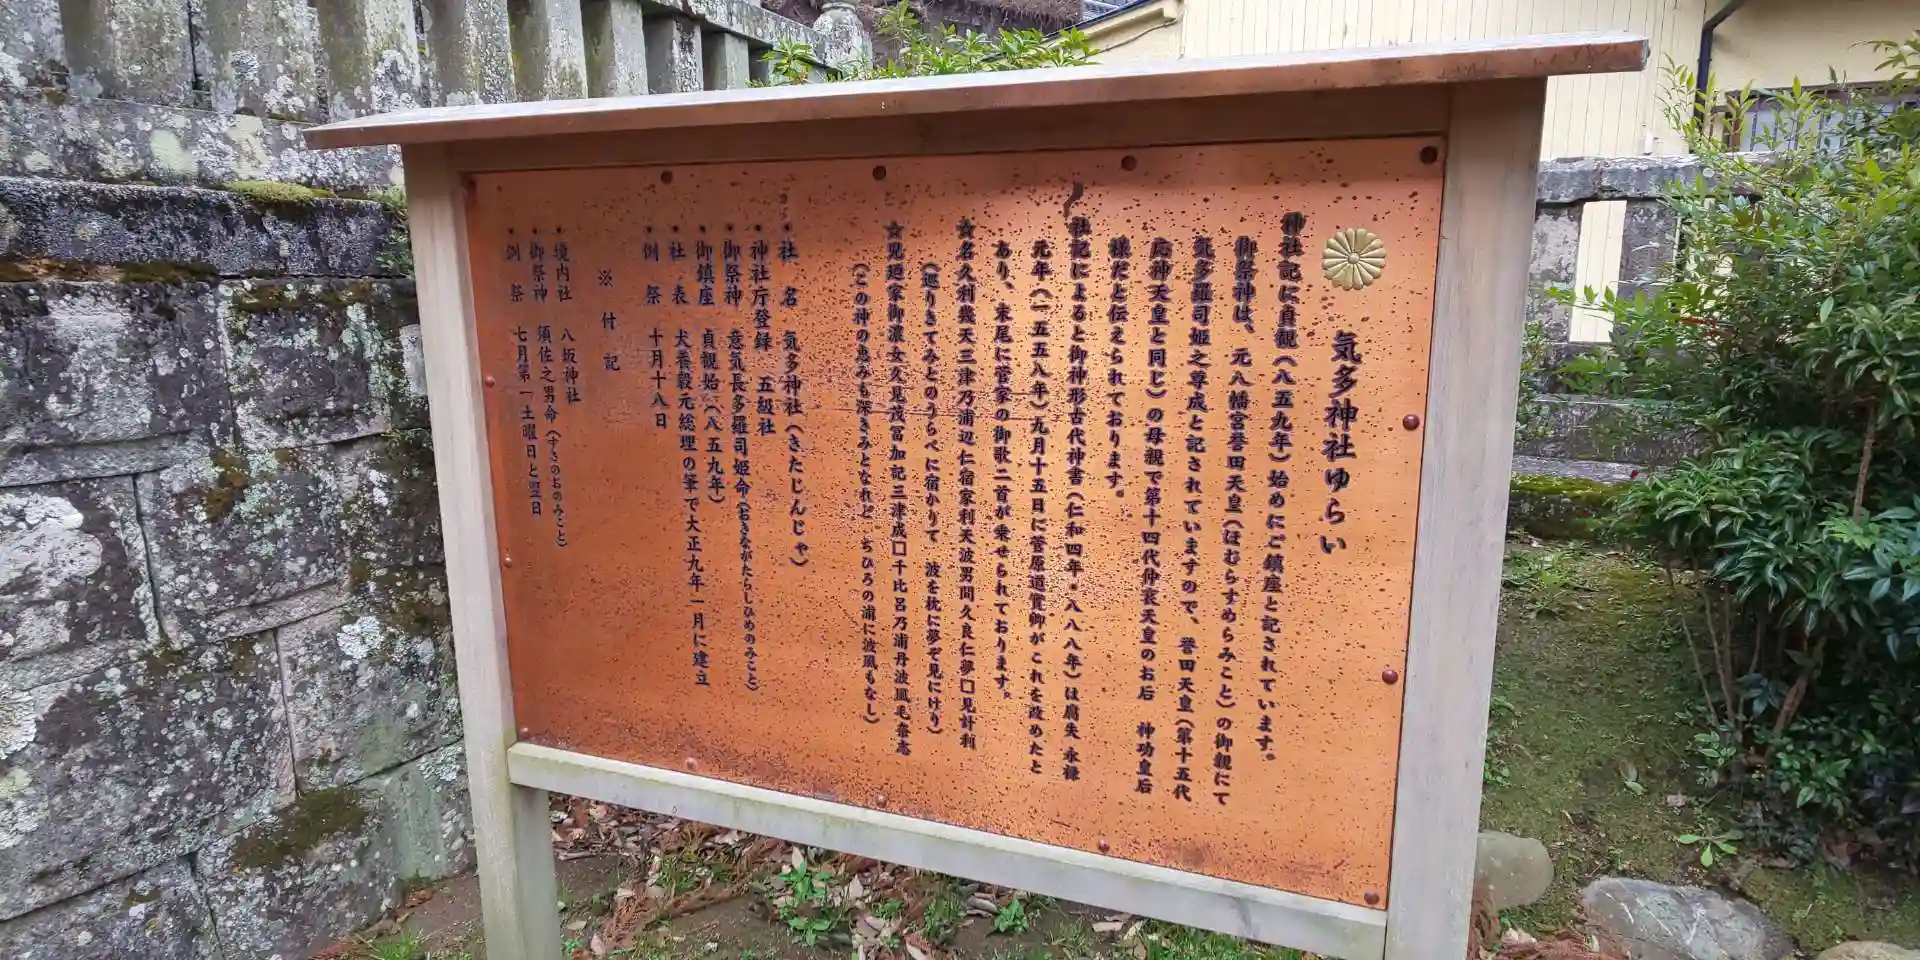 気多神社ゆらい
神社記に貞観(八五九年)始めにご鎮座と記されています。
御祭神は、元八幡宮誉田天皇(ほむらすめらみこと)の御親にて
気多羅司姫之尊成と記されていますので、誉田天皇(第十五代
応神天皇と同じ)の母親で第十四代仲哀天皇のお后 神功皇后
様だと伝えられております。
社記によると御神形古代神書(仁和四年・八八八年)は腐失 永禄
元年(一五五八年)九月十五日に菅原道實卿がこれを改めたと
あり、末尾に菅家の御歌二首が乗せられております。
☆名久利幾天三津乃浦辺仁宿家利天波男間久良仁夢□見計利
(巡りきてみとのうらべに宿かりて 波を枕に夢ぞ見にけり)
☆見廼家御濃女久見茂冨加記三津成□千比呂乃浦丹波風毛奈志
(この神の恵みも深きみとなれど、ちひろの浦に波風もなし)
・社 名 気多神社(きたじんじゃ)
・神社庁登録 五級社
・御祭神 意気長多羅司姫命(おきながたらしひめのみこと)
・御鎮座 貞観始(八五九年)
・社 表 犬養毅元総理の筆で大正九年一月に建立
・例 祭 十月十八日
※ 付 記
・境内社 八坂神社
・御祭神 須佐之男命(すさのおのみこと)
・例 祭 七月第一土曜日と翌日